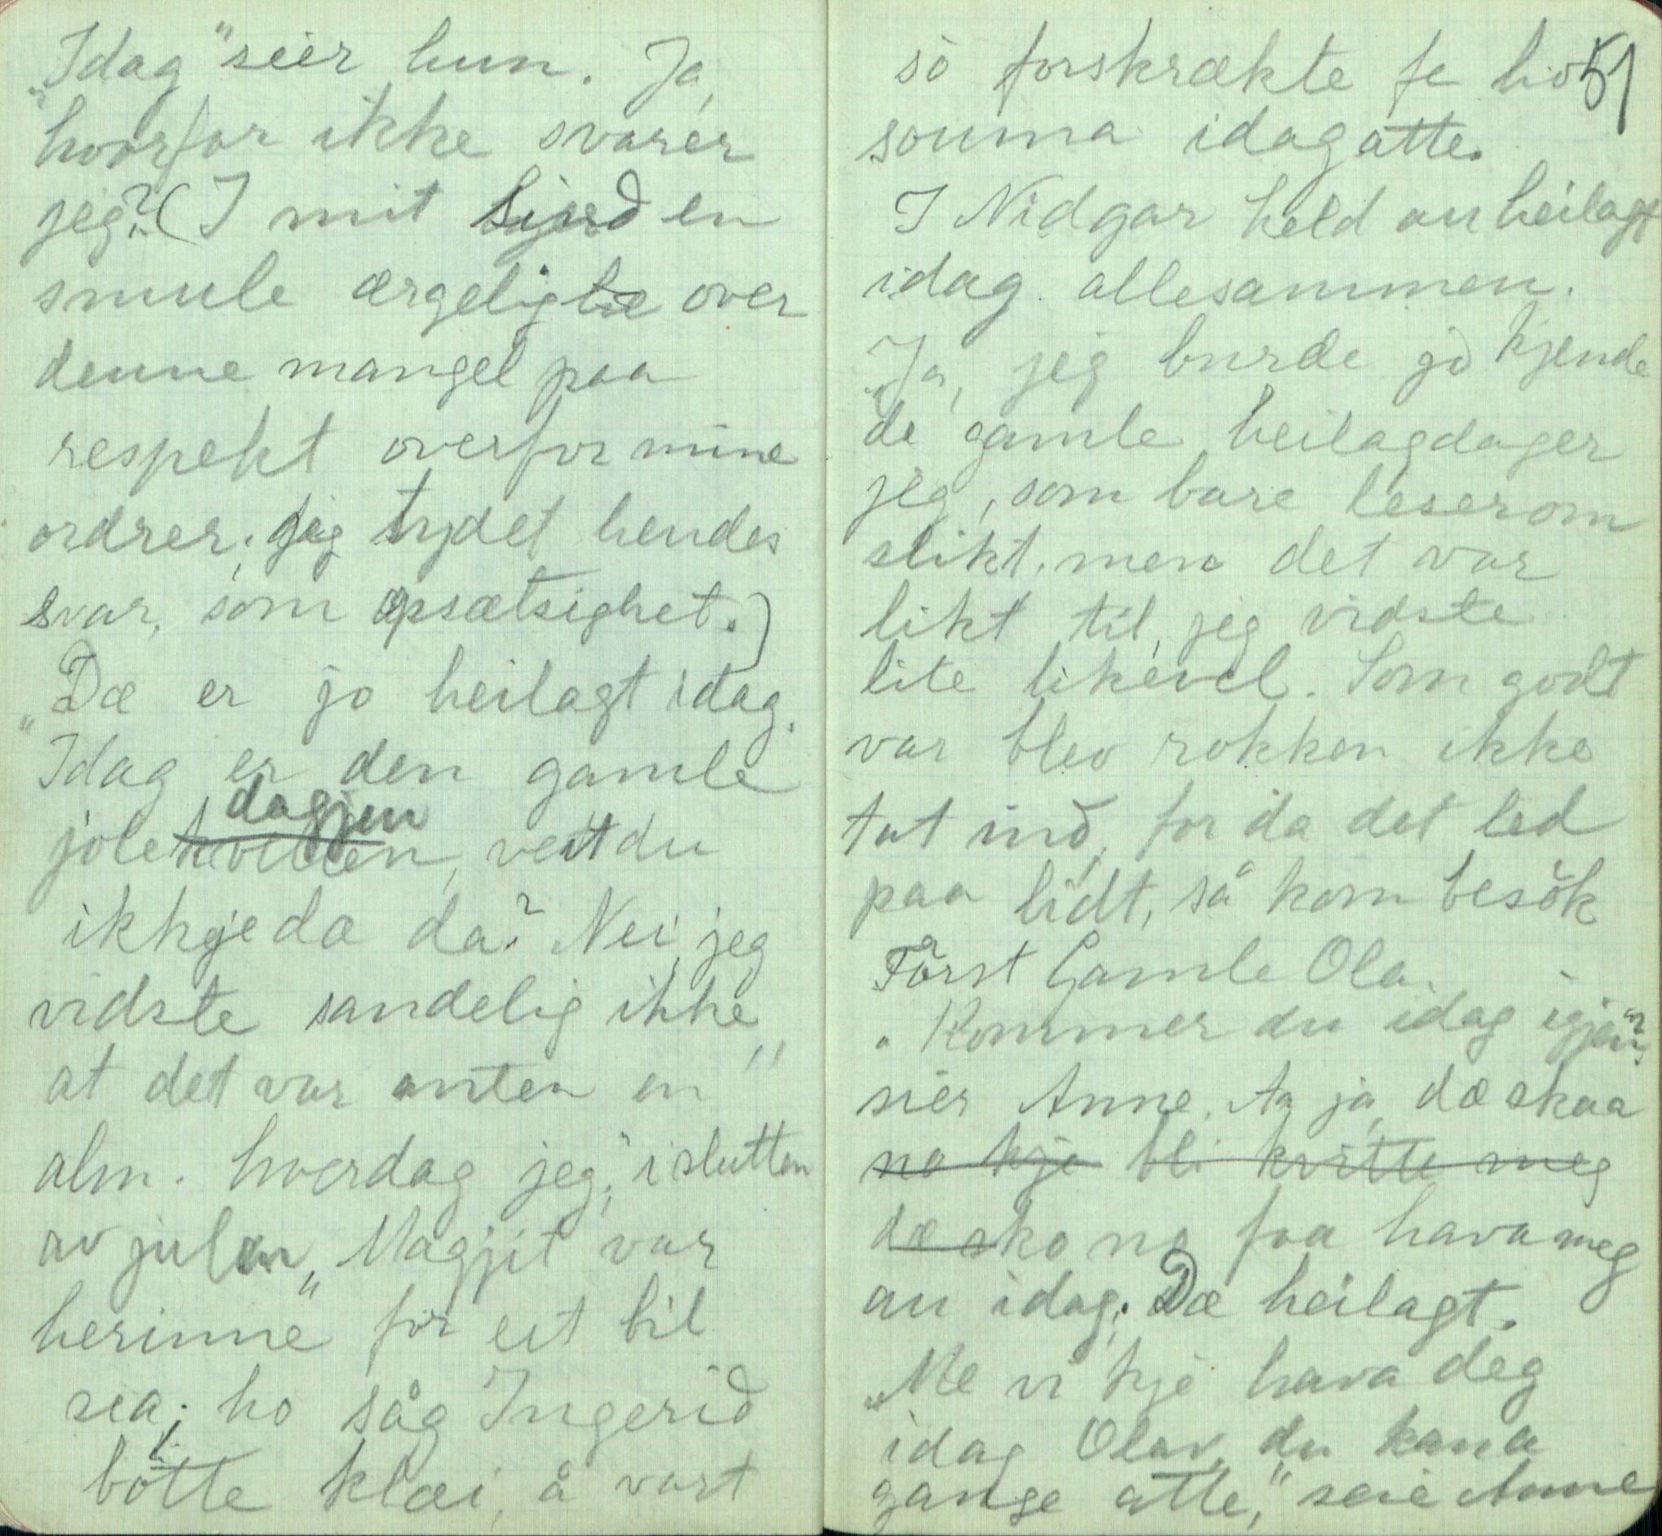 „Idag" seier hun. Ja,
"hvorfor ikke svarer
jeg? (I mit en
smule ærgelig over
denne mangel paa
respekt overfor mine
ordrer, jeg tydet hendes
svar, som opsætsighet.)
„Dæ er jo heilagt idag.
Idag er den gamle
dagjen
jolekvellen, veit du
ikkje da da? Nei, jeg
vidste sandelig ikke,
at det var anten en"
alm. hverdag jeg," i slutten
av julen, „Magjit var
herinne" for eit bil
sea; ho såg Ingerid
bøtte klæi, å vart
so forskrækte fe
51
souma idag atte.
I Nidgar held au heilagt
idag allesammen.
„Ja, jeg burde jo kjende
de gamle heilagdager
jeg, som bare leser om
slikt, men det var
likt til, jeg vidste
lite likevel. Som godt
var blev rokken ikke
tat ind, for da det led
paa lidt, så kom besøk
Først Gamle Ola.
„Kommer du idag igjen?"
sier Anne. Aa ja, dæ skaa
no kje bli kvitte meg
dæ sko no faa hava meg
au idag. Dæ heilagt.
„Me vi kje hava deg
idag Olav, du kana
gange atte," seie Anne